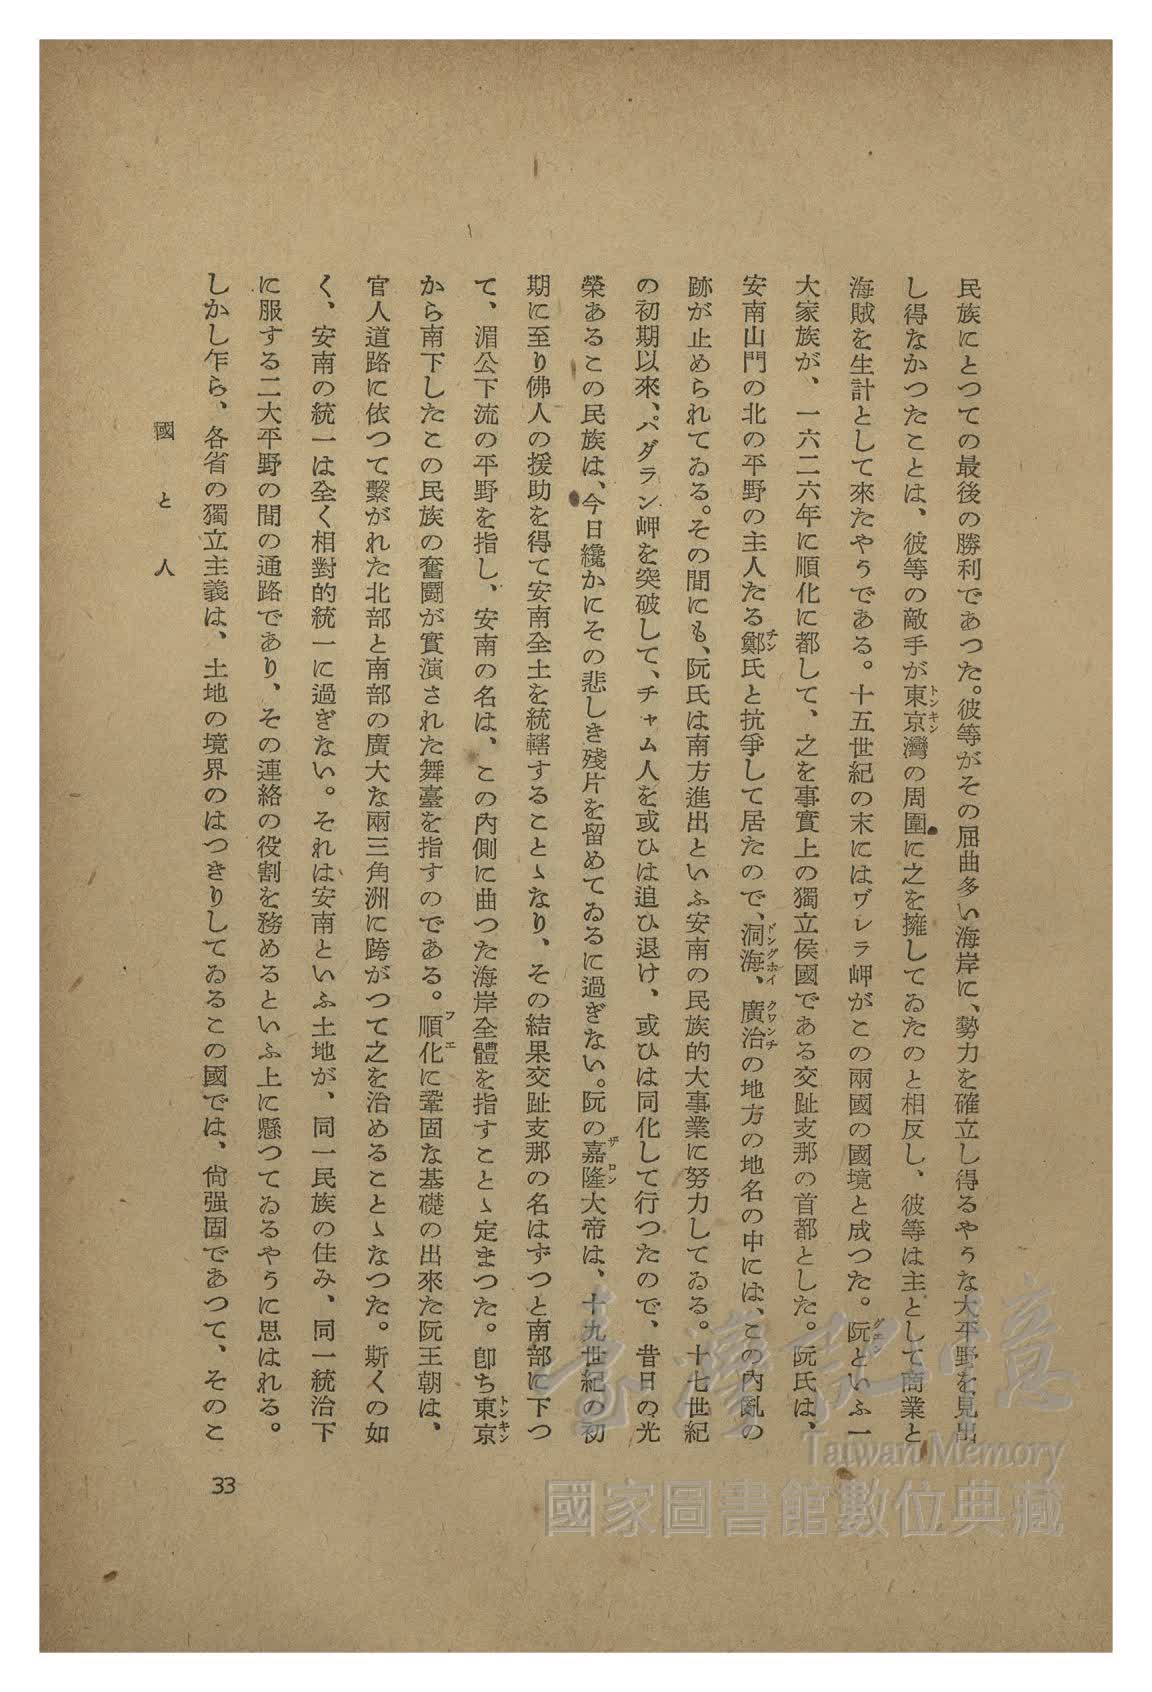 民族にとつての最後の勝利であつた。彼等がその屈曲多い海岸に、勢力を確立し得るやうな大平野を見出
し得なかつたことは、彼等の敵手が東京灣の周圍に之を擁してゐたのと相反し、彼等は主として商業と
トンキン
海賊を生計として來たやうである。十五世紀の末にはヴレラ岬がこの兩國の國境と成つた。阮といふ一
グエ
大家族が、一六二六年に順化に都して、之を事實上の獨立侯國である交趾支那の首都とした。阮氏は、
安南山門の北の平野の主人たる鄭氏と抗爭して居たので、洞海、廣治の地方の地名の中には、この內亂の
チン
ドングホイ
クワンチ
跡が止められてゐる。その間にも、阮氏は南方進出といふ安南の民族的大事業に努力してゐる。十七世紀
の初期以來、パダラン岬を突破して、チャム人を或ひは追ひ退け、或ひは同化して行つたので、昔日の光
榮あるこの民族は、今日纔かにその悲しき殘片を留めてゐるに過ぎない。阮の嘉隆大帝は、十九世紀の初
ザロン
期に至り佛人の援助を得て安南全土を統轄することゝなり、その結果交趾支那の名はずつと南部に下つ
て、湄公下流の平野を指し、安南の名は、この內側に曲つた海岸全體を指すことゝ定まつた。卽ち東京
トンキン
から南下したこの民族の奮鬪が實演された舞臺を指すのである。順化に鞏固な基礎の出來た阮王朝は、
フエ
官人道路に依つて繫がれた北部と南部の廣大な兩三角洲に跨がつて之を治めることゝなつた。斯くの如
く、安南の統一は全く相對的統一に過ぎない。それは安南といふ土地が、同一民族の住み、同一統治下
に服する二大平野の間の通路であり、その連絡の役割を務めるといふ上に懸つてゐるやうに思はれる。
しかし乍ら、各省の獨立主義は、土地の境界のはつきりしてゐるこの國では、尙强固であつて、そのこ
國と人
33
臺灣記憶
Taiwan Memory
國家圖書館數位典藏